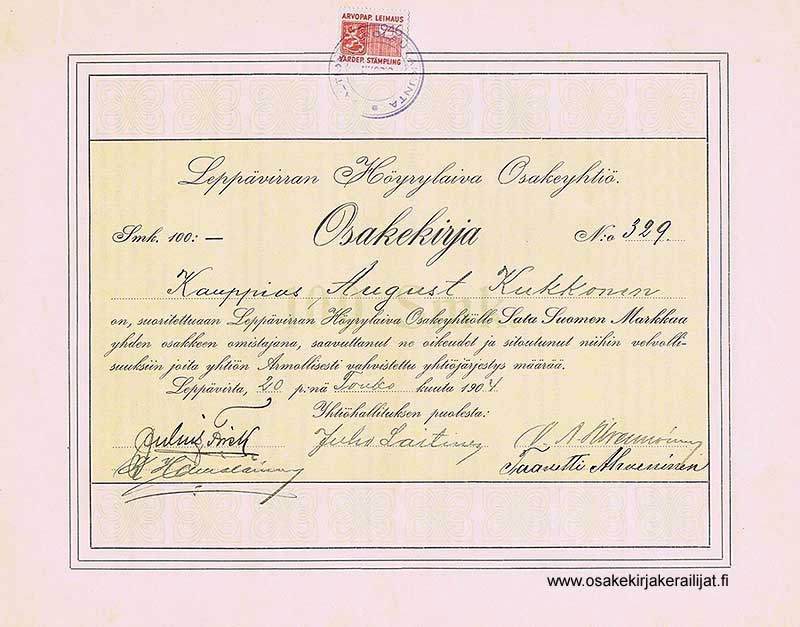 ARVOPAP. LEIMAUS
1946
VARDEP. STÄMPLING
Leppävirran Höyrylaiva Osakeyhtiö.
Smk. 100: — Osakekirja N:o 329
Kauppias August Kukkonen
100 Smk
on, suoritettuaan Leppävirran Höyrylaiva Osakeyhtiölle Sata Suomen Markkaa
yhden osakkeen omistajana, saavuttanut ne oikeudet ja sitoutunut niihin velvolli-
suuksiin joita yhtiön Armollisesti vahvistettu yhtiöjärjestys määrää.
Leppävirta, 20 p:nä Touko kuuta 1904.
Yhtiöhallituksen puolesta:
Juho Laitinen
Taavetti Ahveninen
www.osakekirjakerailijat.fi